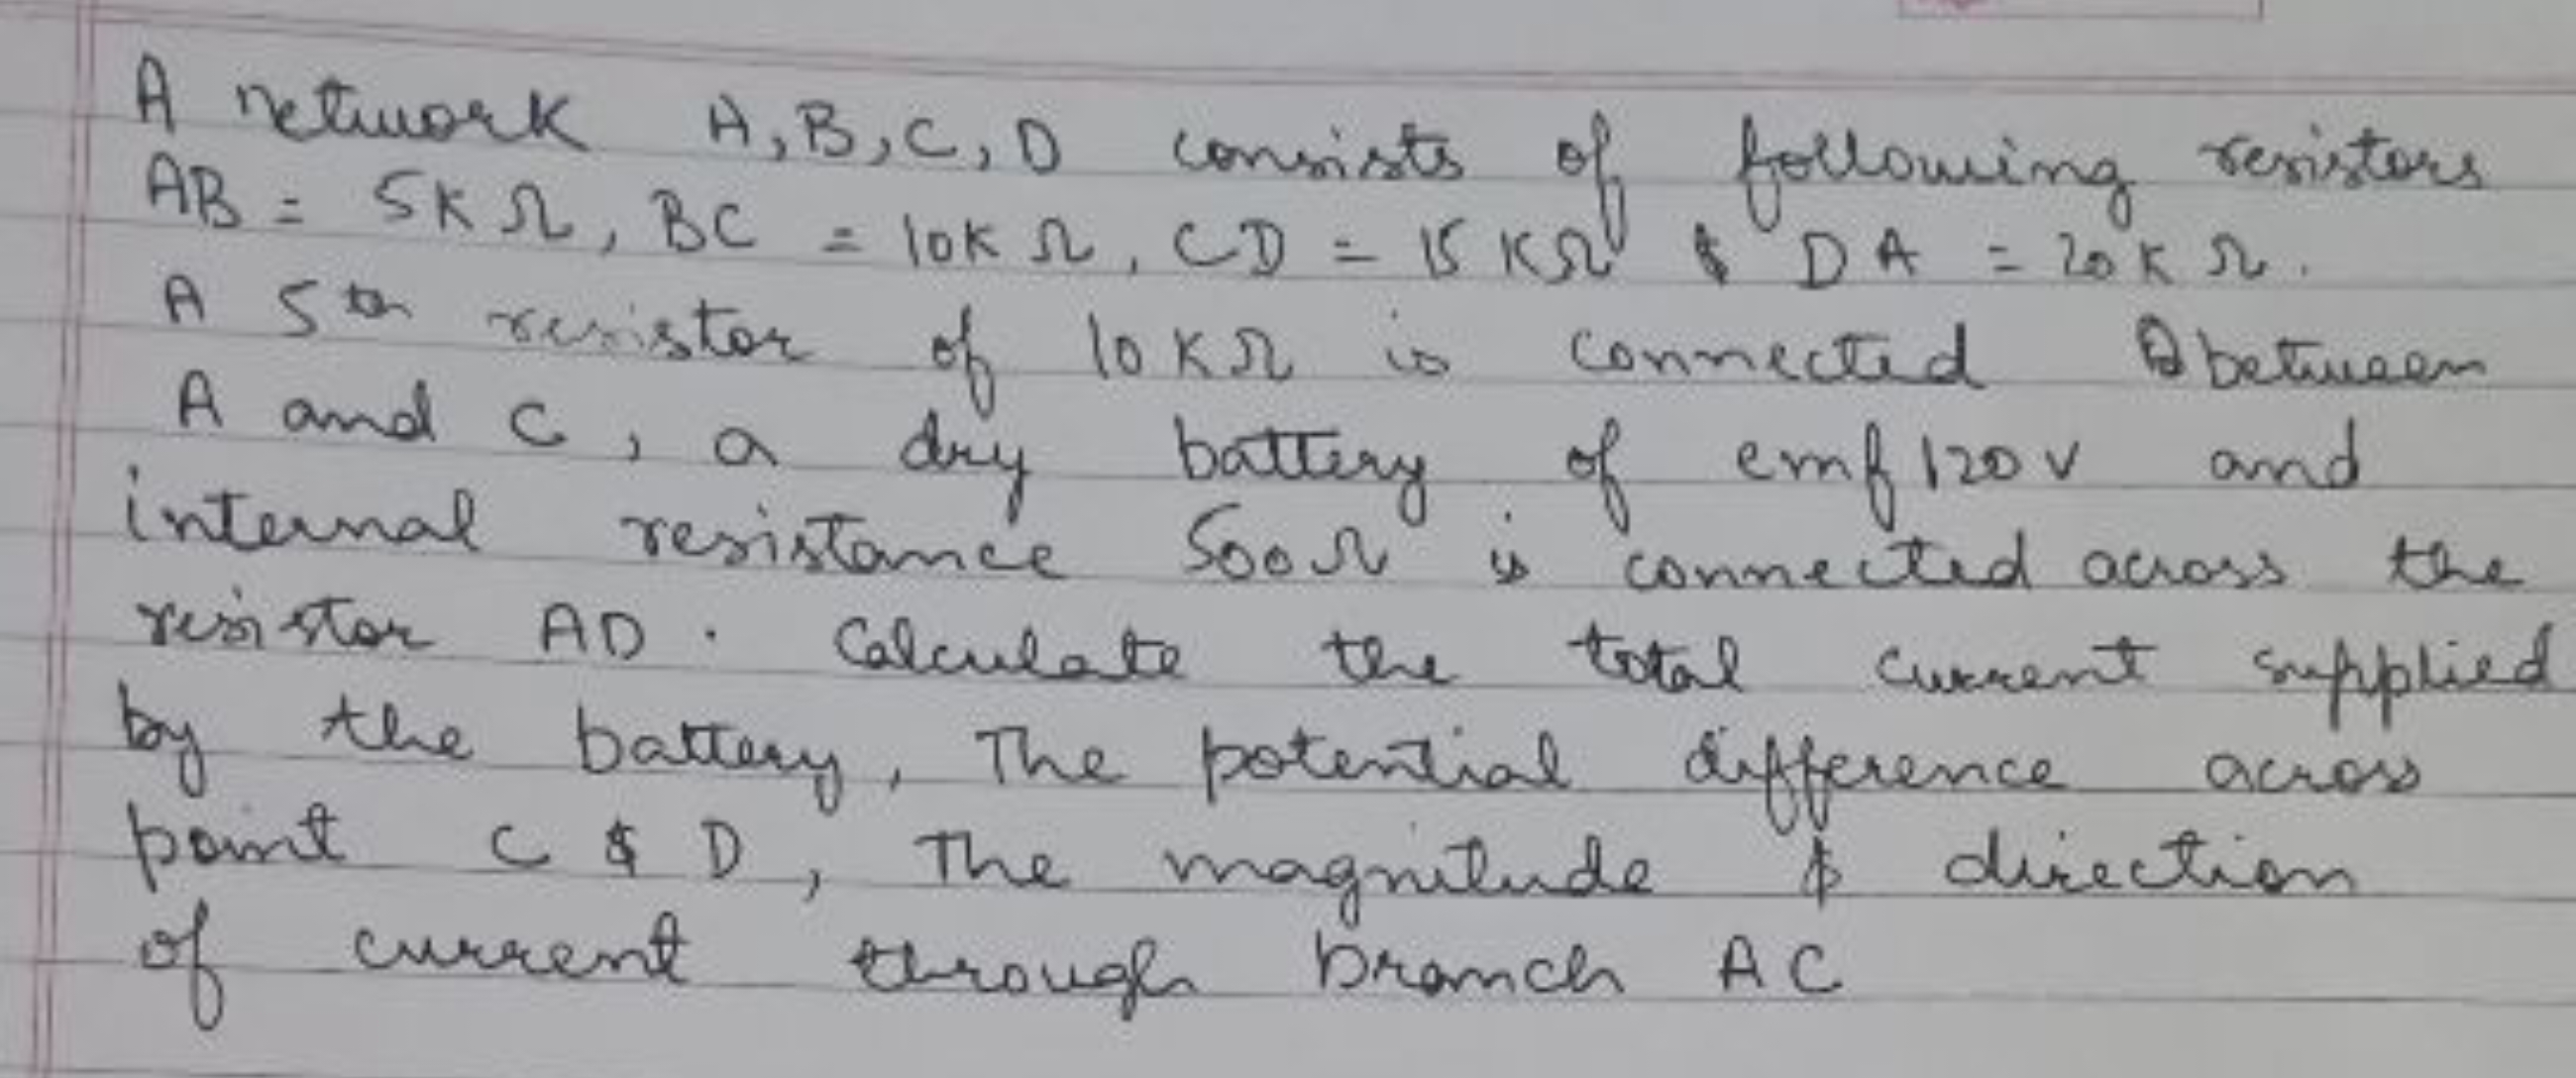 A network A, B, C, D consists of following resistors
AB = 5K Ω, BC = 10K Ω, CD = 15 KΩ & DA = 20 K Ω.
A 5th resistor of 10 KΩ is connected between
A and C, a dry battery of emf 120 V and
internal resistance 500Ω is connected across the
resistor AD. Calculate the total current supplied
by the battery, The potential difference across
point C & D, The magnitude & direction
of current through branch AC